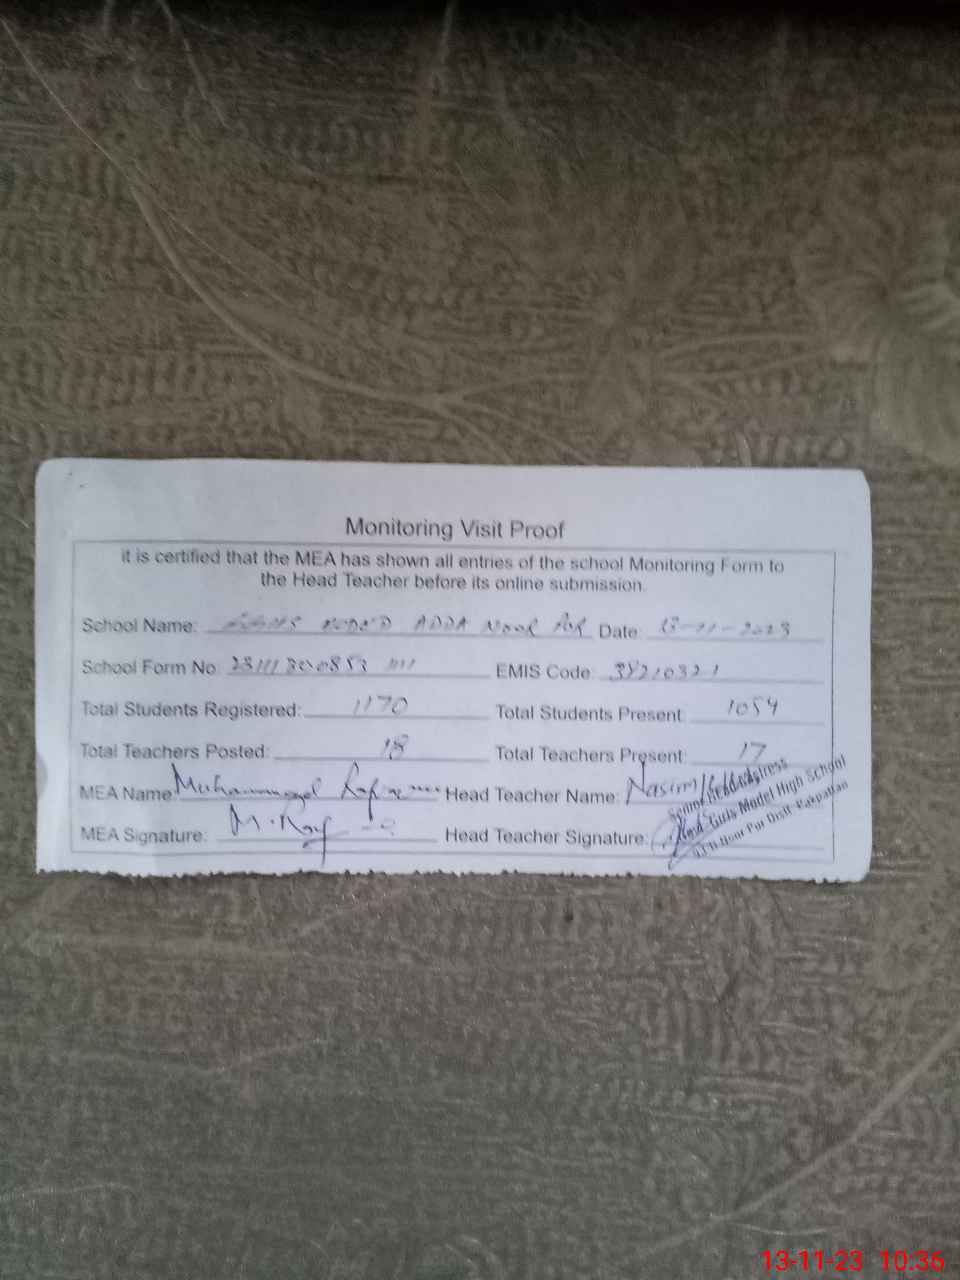 Monitoring Visit Proof
it is certified that the MEA has shown all entries of the school Monitoring Form to
the Head Teacher before its online submission.
School Name: ADDA NOOR PUR Date: 13-11-2023
School Form No: EMIS Code:
Total Students Registered: 1170 Total Students Present: 1054
Total Teachers Posted: 18 Total Teachers Present: 17
MEA Name: Muhammad Head Teacher Name: Nasim
MEA Signature: Head Teacher Signature:
Senior Headmistress
Govt. Girls Model High School
Noor Pur Distt. Pakpattan
13-11-23 10:36